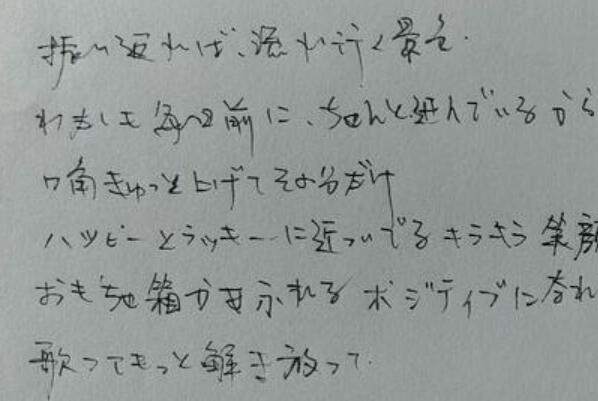 振り返れば、流れ行く景色.
わたしも毎日前に、ちゃんと進んでいるから
口角きゅっと上げてその分だけ
ハッピーとラッキーに近づいてる キラキラ 笑顔
おもちゃ箱から示れる ポジティブに
歌ってもっと解き放って.